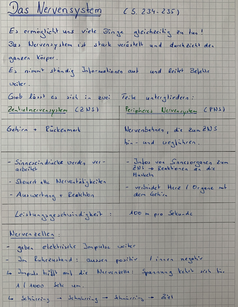 Das Nervensystem (S. 234-235)
Es ermöglicht uns viele Dinge gleichzeitig zu tun!
Das Nervensystem ist stark verästelt und durchzieht den
ganzen Körper.
Es nimmt ständig Informationen auf und leitet Befehle
weiter.
lässt es sich in zwei Teile untergliedern:
Zentralnervensystem (ZNS) Peripheres Nervensystem (PNS)
Gehirn + Rückenmark Nervenbahnen, die zum ZNS
hin- und wegführen.
- Sinneseindrücke werden ver-
arbeitet
- Steuert alle Nerventätigkeiten
- Auswertung + Reaktion
- von Sinnesorganen zum
ZNS → Reaktionen an die
Muskeln
- verbindet Organe mit
dem Gehirn
Leistungsgeschwindigkeit: 100 m pro Sekunde
Nervenzellen:
- geben elektrische Impulse weiter
- Im Ruhezustand: aussen positiv / innen negativ
Impuls trifft auf die Nervenzelle: Spannung kehrt sich für
1/1000 Sek um.